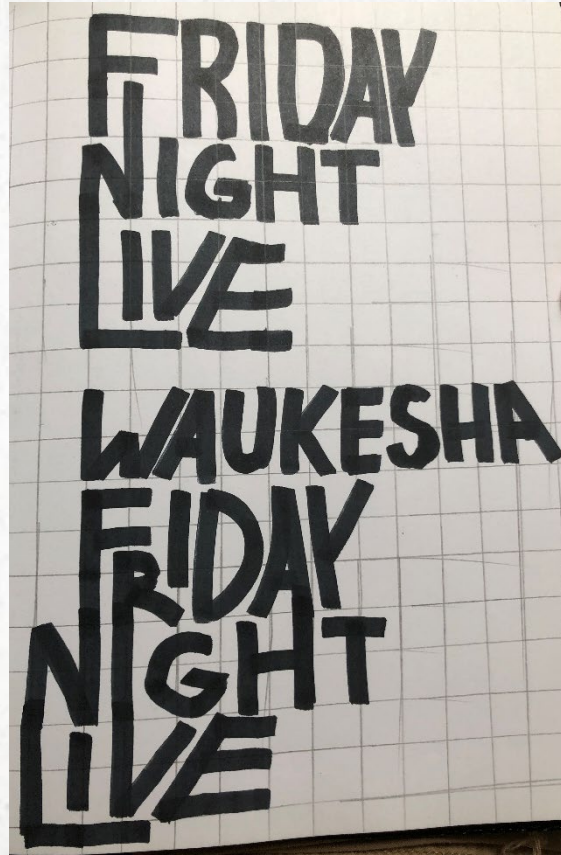 FRIDAY
NIGHT
LIVE
WAUKESHA
FRIDAY
NIGHT
LIVE